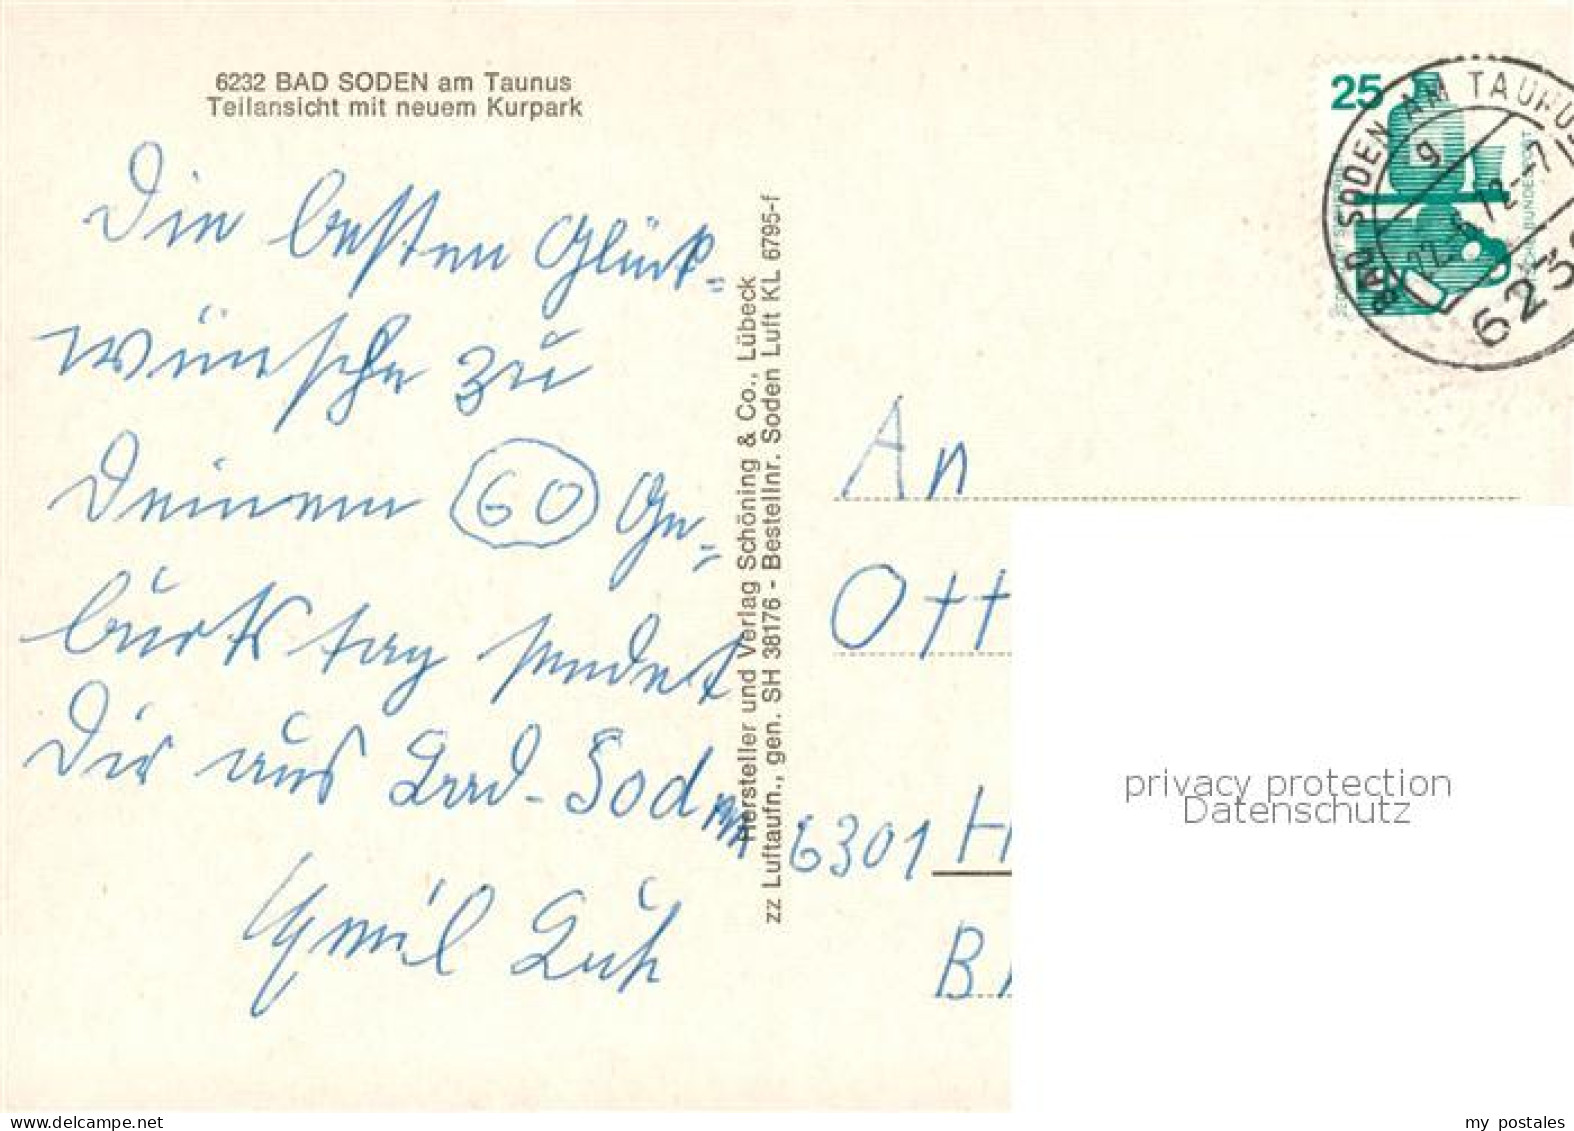 6232 BAD SODEN am Taunus
Teilansicht mit neuem Kurpark
Die besten Glück-
wünsche zu
Deinem 60 Ge-
burtstag sendet
Dir aus Baad-Soden
Emil
Hersteller und Verlag Schöning & Co., Lübeck
zz Luftaufn., gen. SH 38176 - Bestellnr. Soden Luft KL 6795-f
25
BAD SODEN AM TAUNUS
g
623
An
Ott
6301 H
B
privacy protection
Datenschutz
my postales